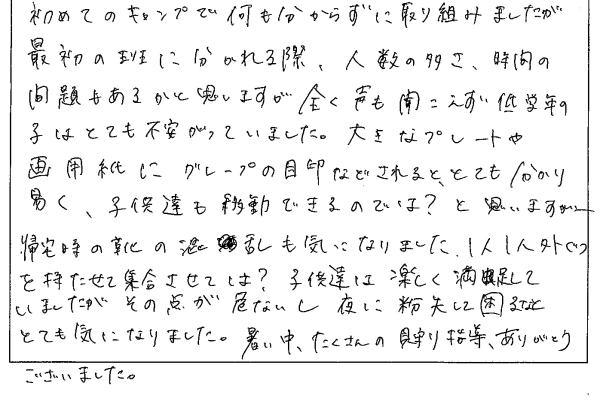 初めてのキャンプで何も分からずに取り組みましたが
最初の班に分かれる際、人数の多さ、時間の
問題もあるかと思いますが全く声も聞こえず低学年の
子はとても不安がっていました。大きなプレートや
画用紙にグループの目印などされると、とても分かり
易く、子供達も移動できるのでは？と思いますが…
帰宅時の靴の混乱も気になりました、1人1人外ぐつ
を持たせて集合させては？子供達は楽しく満足して
いましたがその点が危ないし夜に紛失して困るなど
とても気になりました。暑い中、たくさんの見守り指導、ありがとう
ございました。